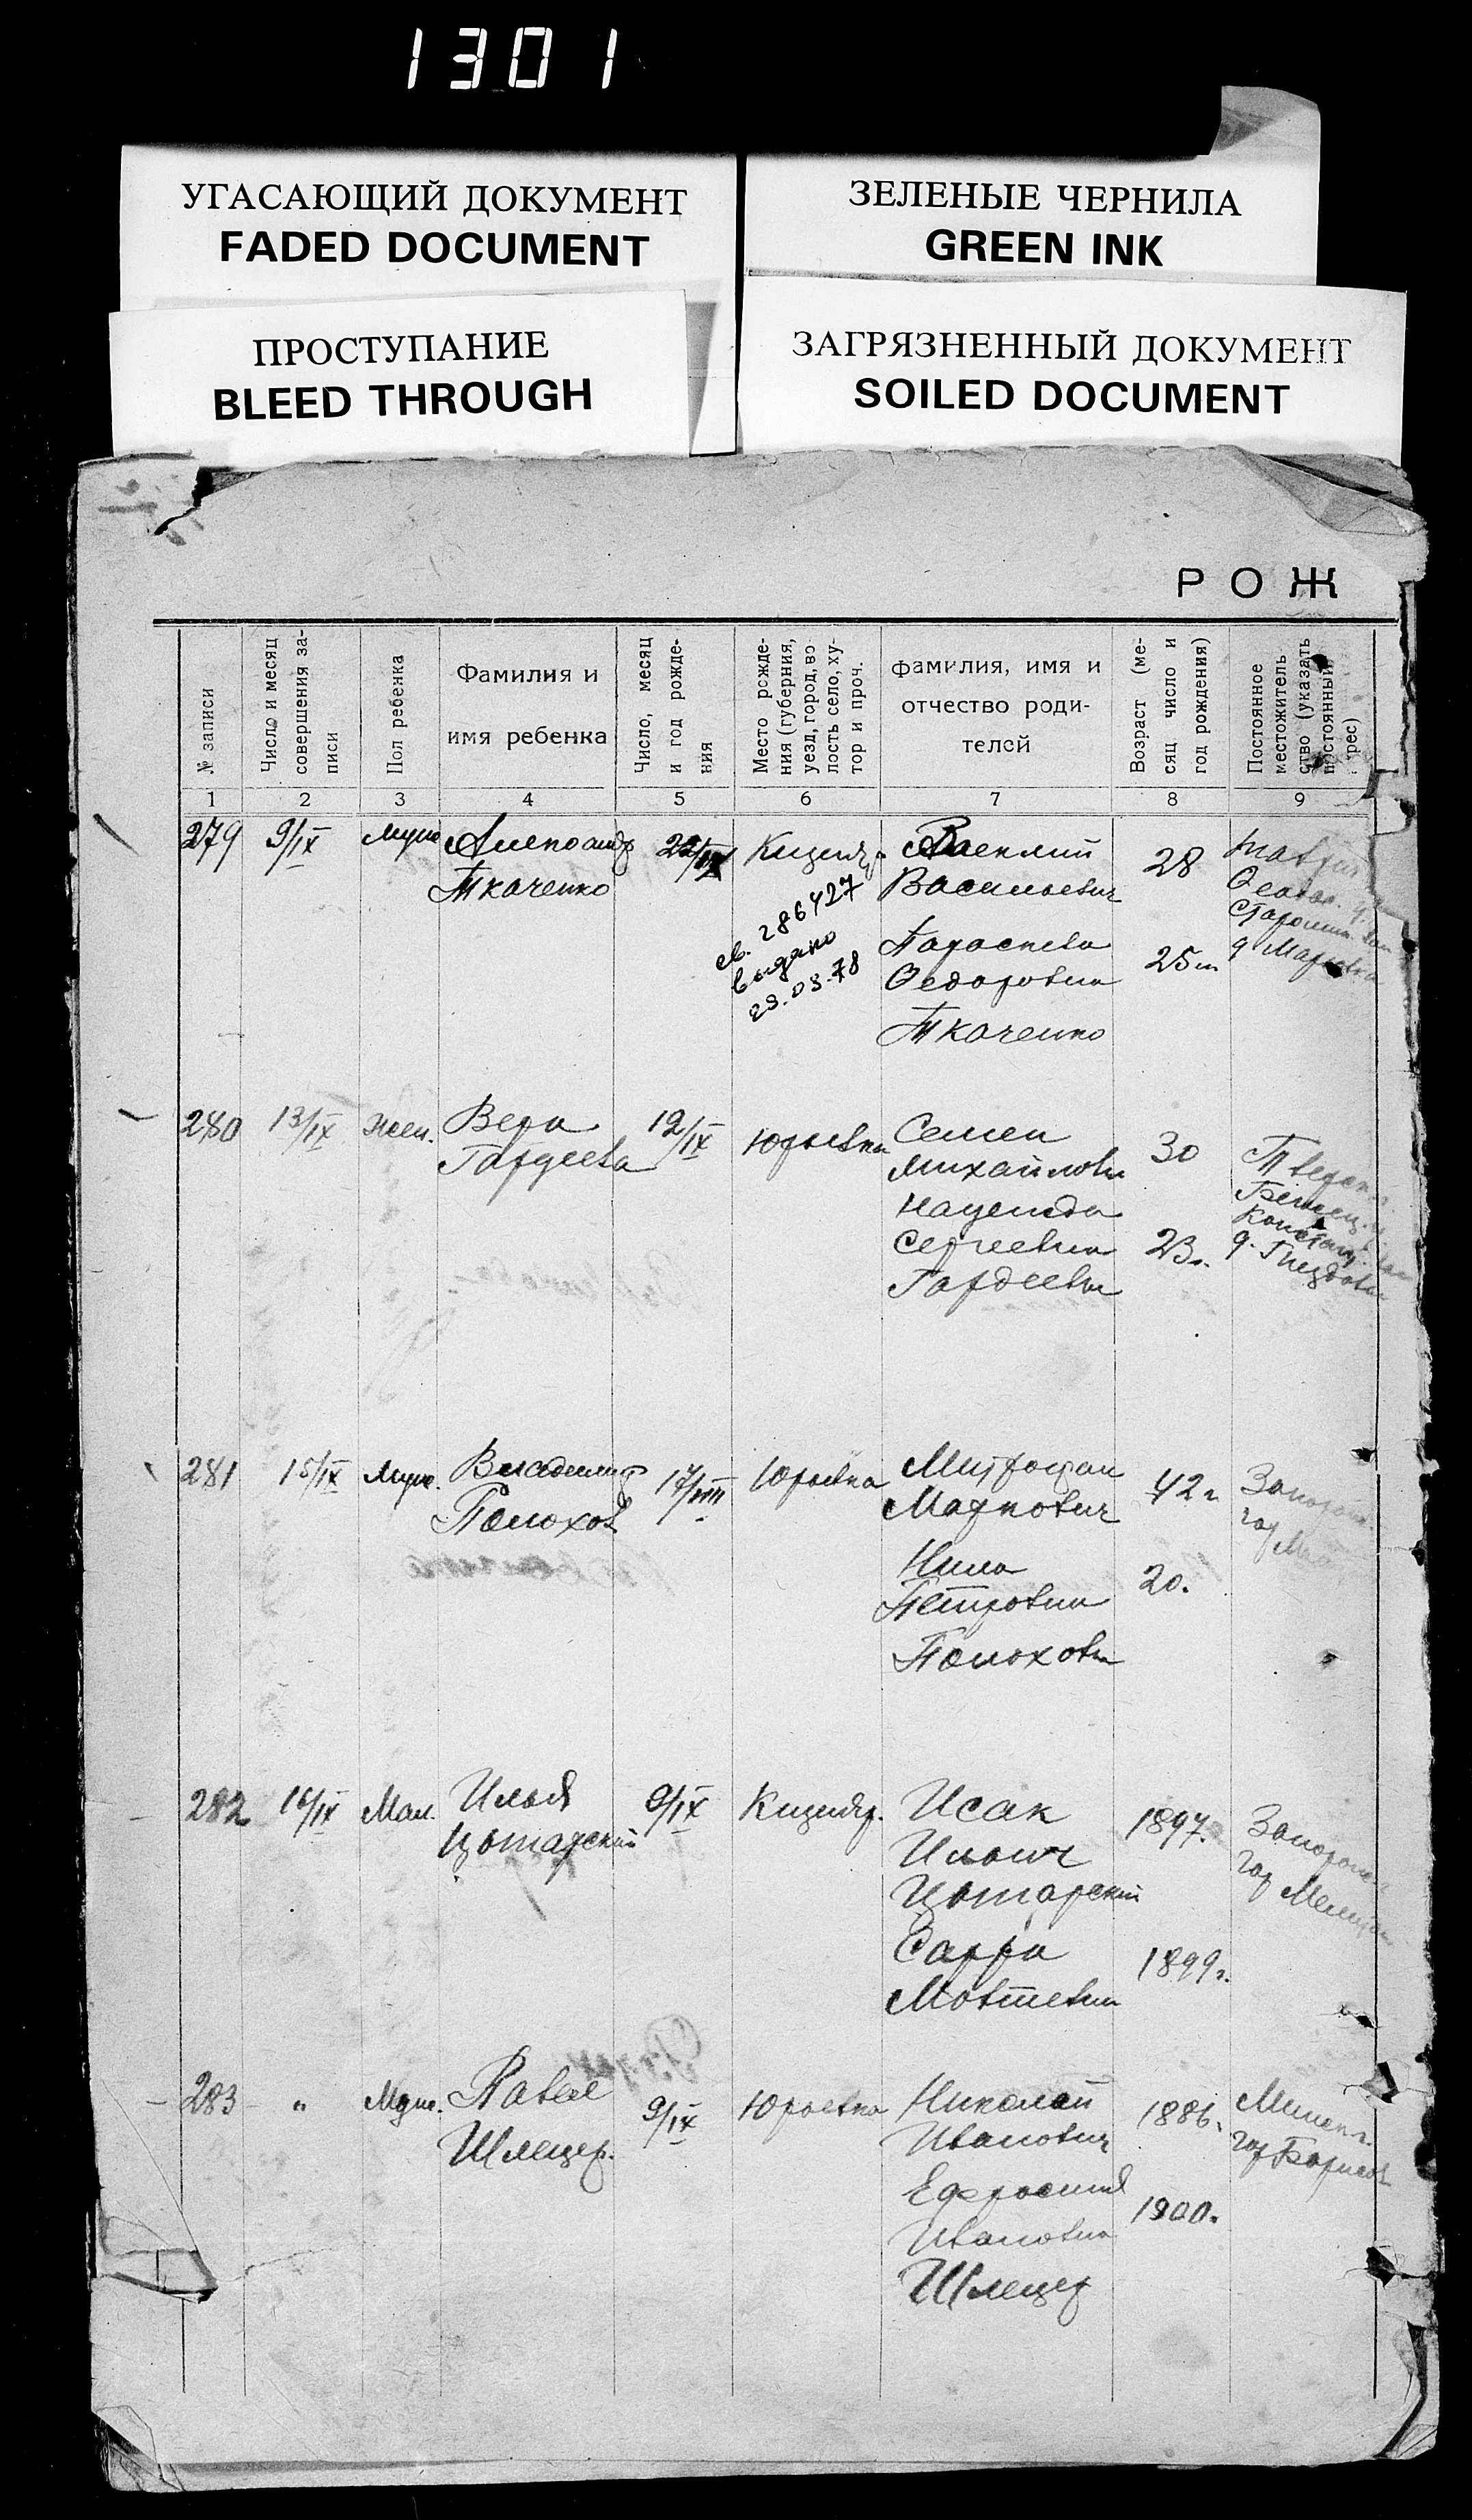 1301
УГАСАЮЩИЙ ДОКУМЕНТ
FADED DOCUMENT
ЗЕЛЕНЫЕ ЧЕРНИЛА
GREEN INK
ПРОСТУПАНИЕ
BLEED THROUGH
ЗАГРЯЗНЕННЫЙ ДОКУМЕНТ
SOILED DOCUMENT
РОЖ
№ записи
Число и месяц
совершения за-
писи
Пол ребенка
Фамилия и
имя ребенка
Число, месяц
и год рожде-
ния
Место рожде-
ния (губерния,
уезд, город, во
лость село, ху-
тор и проч.
фамилия, имя и
отчество роди-
телей
Возраст (ме-
сяц число и
год рождения)
Постоянное
местожитель
ство (указать
постоянный
адрес)
1 2 3 4 5 6 7 8 9
279
9/IX
Муж
Александр
Ткаченко
Василий
Васильевич
Параскева
Федоровна
Ткаченко
28
25
св. 286427
выдано
29.03.78
280
13/IX
Жен.
Вера
Гордеева
12/IX
Юрьевка
Семен
Михайлович
Надежда
Сергеевна
Гордеевы
30
23
281
15/IX
Муж.
Владимир
Полохов
17/VIII
Юрьевка
Митрофан
Маркович
Нина
Петровна
Полоховы
42
20.
282
16/IX
Мал.
Илья
Цытарский
9/IX
Исак
Ильич
Цытарский
Сарра
Мовшевна
1897.
1899г.
Запорож
гор Мелит
283
"
Муж.
Павел
Шлецер.
9/IX
Юрьевка
Николай
Иванович
Ефросиния
Ивановна
Шлецер
1886.
1900.
Минск г.
гор Борисов